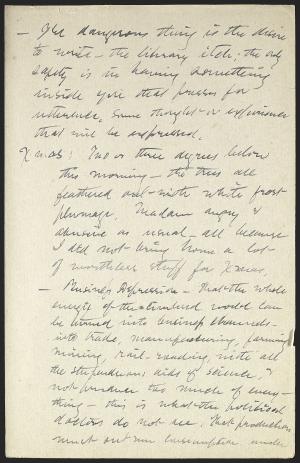 — One dangerous thing is the desire
to write — the library itch; the only
safety is in having something
inside you that presses for
utterance, some thought or experience
that will be expressed.
Xmas: Two or three degrees below
this morning — the trees all
feathered out with white frost
plumage. Madam angry &
abusive as usual — all because
I did not bring home a lot
of worthless stuff for Xmas.
— Business Depression — that the whole
energy of the world can
be turned into business channels —
into trade, manufacturing, farming
mining, rail-roading, with all
the stupendous aids of science, &
not produce too much of every-
thing — this is what the political
doctors do not see. That production
must out run consumption under